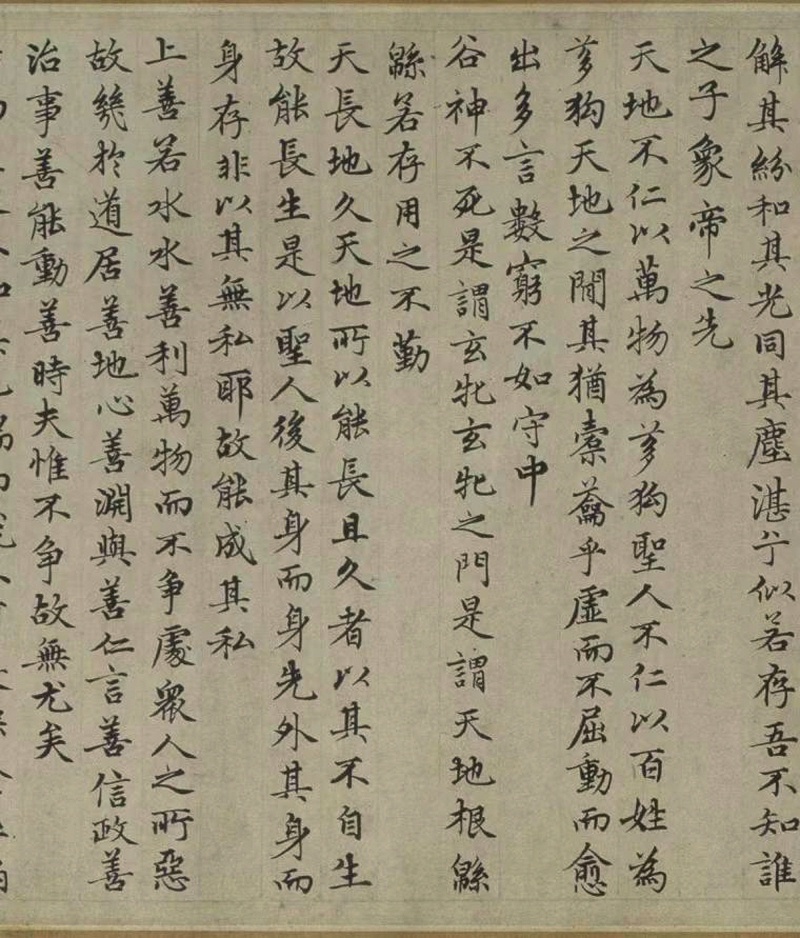 解其紛和其光同其塵湛兮似若存吾不知誰
之子象帝之先
天地不仁以萬物為芻狗聖人不仁以百姓為
芻狗天地之間其猶橐蘥乎虛而不屈動而愈
出多言數窮不如守中
谷神不死是謂玄牝玄牝之門是謂天地根緜
緜若存用之不勤
天長地久天地所以能長且久者以其不自生
故能長生是以聖人後其身而身先外其身而
身存非以其無私耶故能成其私
上善若水水善利萬物而不爭處眾人之所惡
故幾於道居善地心善淵與善仁言善信政善
治事善能動善時夫惟不爭故無尤矣